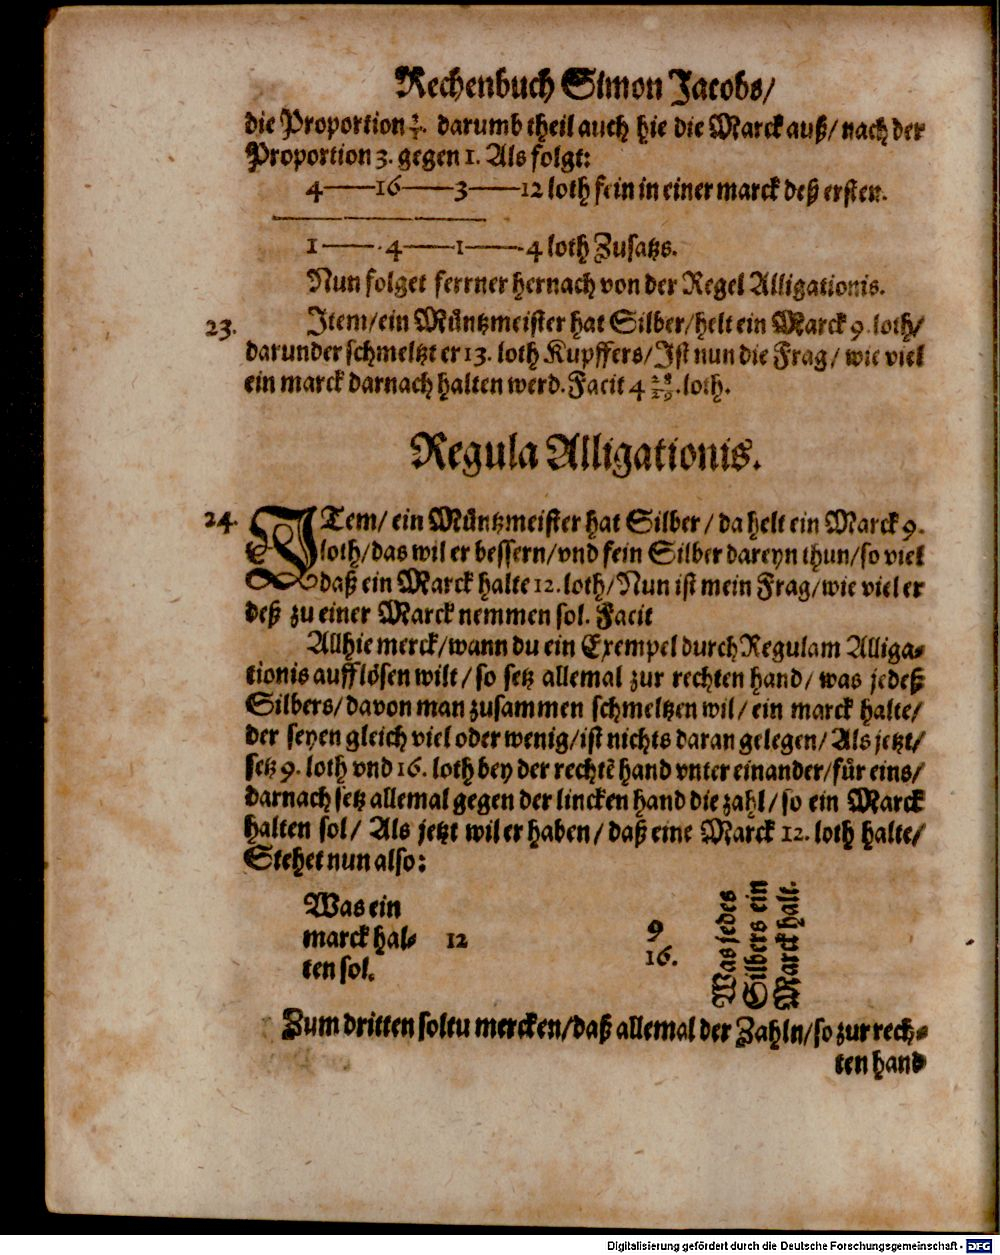 Rechenbuch Simon Jacobs/
die Proportion 3/1. darumb theil auch hie die Marck auß/ nach der
Proportion 3. gegen 1. Als folgt:
4——16——3——12 loth fein in einer marck deß ersten.
1——4——1——4 loth Zusatzs.
Nun folget ferrner hernach von der Regel Alligationis.
23. Item/ein Müntzmeister hat Silber/helt ein Marck 9. loth/
darunder schmeltzt er 13. loth Kupffers/Ist nun die Frag/ wie viel
ein marck darnach halten werd. Facit 4 28/29. loth.
Regula Alligationis.
24. ITem/ ein Müntzmeister hat Silber / da helt ein Marck 9.
loth/das wil er bessern/vnd fein Silber dareyn thun/so viel
daß ein Marck halte 12. loth/Nun ist mein Frag/wie viel er
deß zu einer Marck nemmen sol. Facit
Allhie merck/wann du ein Exempel durch Regulam Alliga-
tionis aufflösen wilt/ so setz allemal zur rechten hand/ was jedeß
Silbers/davon man zusammen schmeltzen wil/ ein marck halte/
der seyen gleich viel oder wenig/ist nichts daran gelegen/Als jetzt/
setz 9. loth vnd 16. loth bey der rechtē hand vnter einander/für eins/
darnach setz allemal gegen der lincken hand die zahl/ so ein Marck
halten sol/ Als jetzt wil er haben/ daß eine Marck 12. loth halte/
Stehet nun also:
Was ein
marck hal-
ten sol.
12
9
16.
Was jedes
Silbers ein
Marck halt.
Zum dritten soltu mercken/daß allemal der Zahln/so zur rech-
ten hand
Digitalisierung gefördert durch die Deutsche Forschungsgemeinschaft - DFG